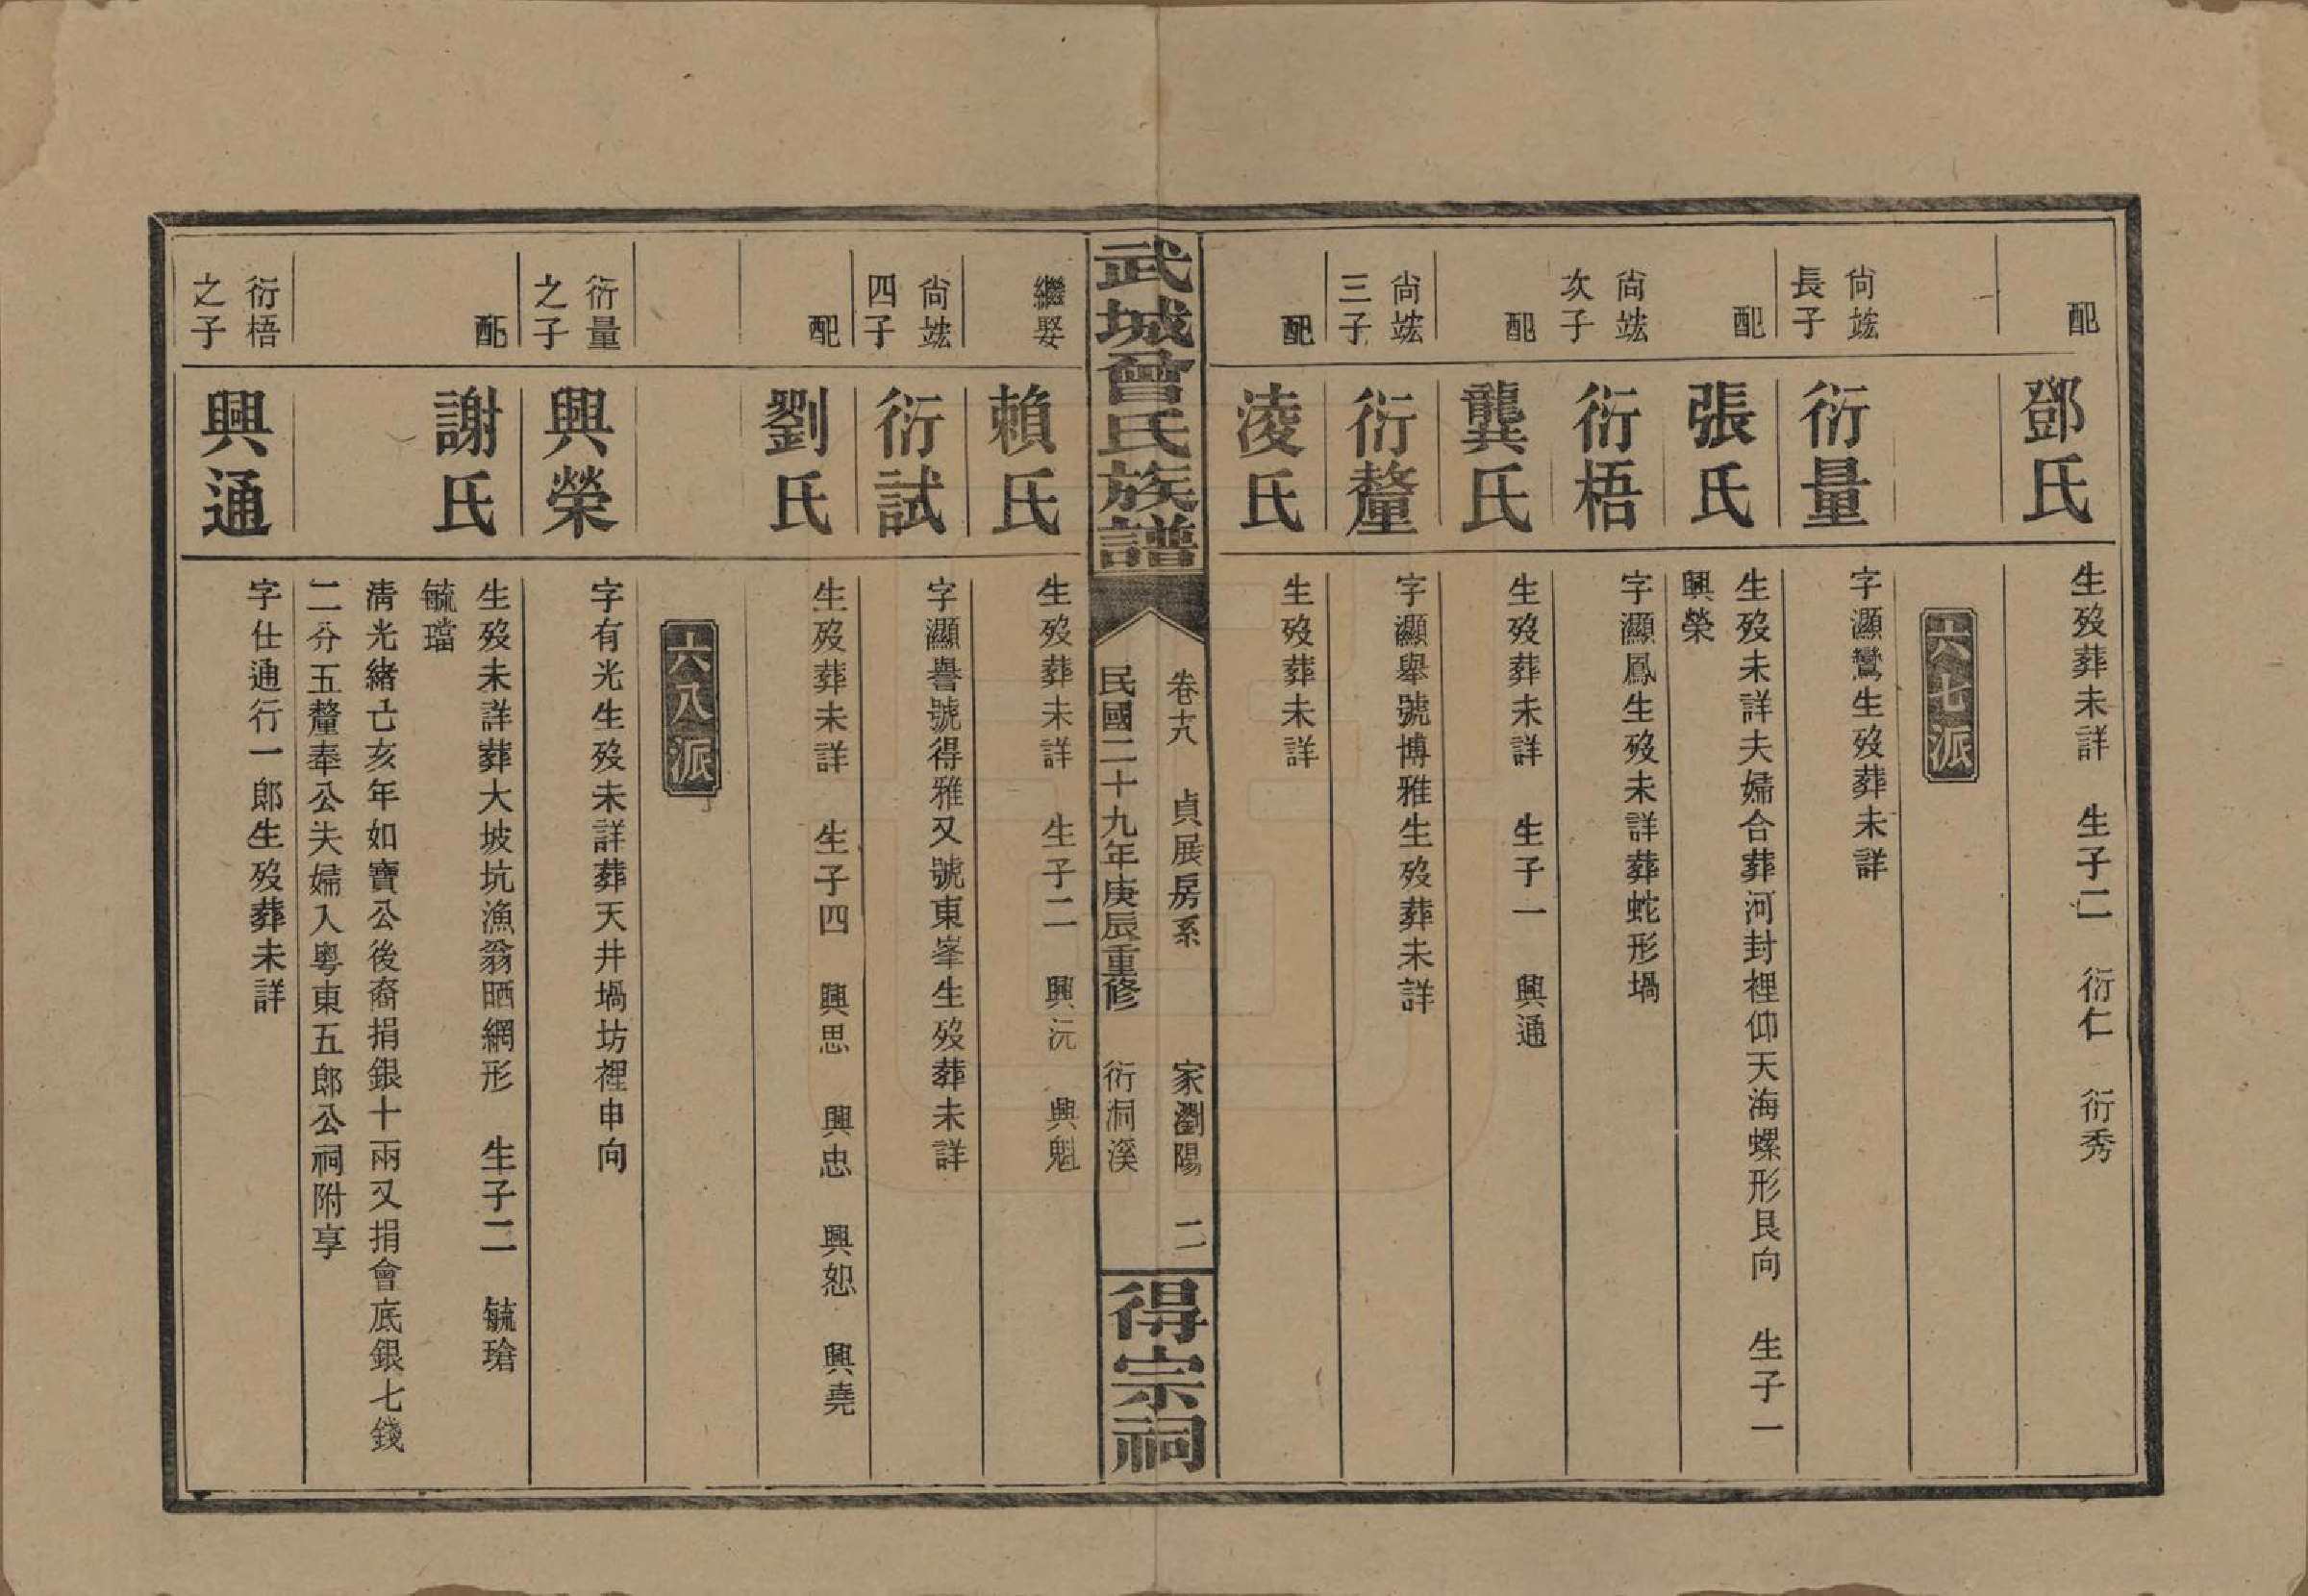 配
鄧氏
生歿葬未詳　生子二　衍仁　衍秀
六七派
尙竑
長子
衍量
字灝鸞生歿葬未詳
配
張氏
生歿未詳夫婦合葬河封裡仰天海螺形艮向　生子一
興榮
尙竑
次子
衍梧
字灝鳳生歿未詳葬蛇形堝
配
龔氏
生歿葬未詳　生子一　興通
尙竑
三子
衍釐
字灝舉號博雅生歿葬未詳
配
淩氏
生歿葬未詳
武城曾氏族譜
卷　貞展房系　家瀏陽　二
民國二十九年庚辰重修　衍洞溪
得宗祠
繼娶
賴氏
生歿葬未詳　生子二　興沅　興魁
尙竑
四子
衍試
字灝譽號得雅又號東峯生歿葬未詳
配
劉氏
生歿葬未詳　生子四　興思　興忠　興恕　興堯
六八派
衍量
之子
興榮
字有光生歿未詳葬天井堝坊裡申向
配
謝氏
生歿未詳葬大坡坑漁翁晒網形　生子二　毓瑲
毓璫
淸光緒亡亥年如寶公後裔捐銀十兩又捐會底銀七錢
二分五釐奉公夫婦入粵東五郎公祠附享
衍梧
之子
興通
字仕通行一郎生歿葬未詳